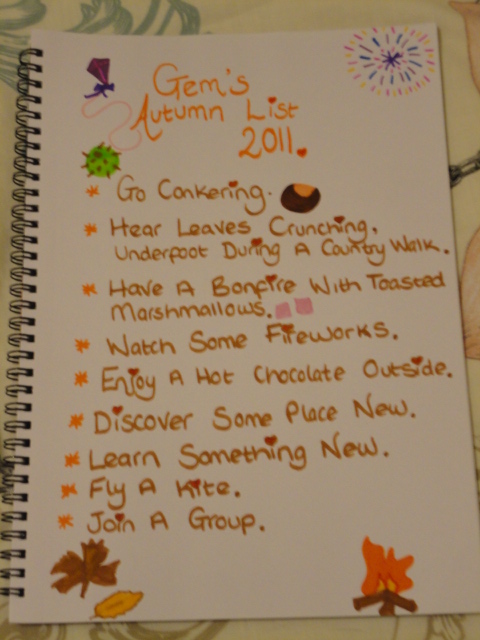 Gem's
Autumn List
2011.
Go Conkering.
Hear Leaves Crunching.
Underfoot During A Country Walk.
Have A Bonfire With Toasted
Marshmallows.
Watch Some Fireworks.
Enjoy A Hot Chocolate Outside.
Discover Some Place New.
Learn Something New.
Fly A Kite.
Join A Group.